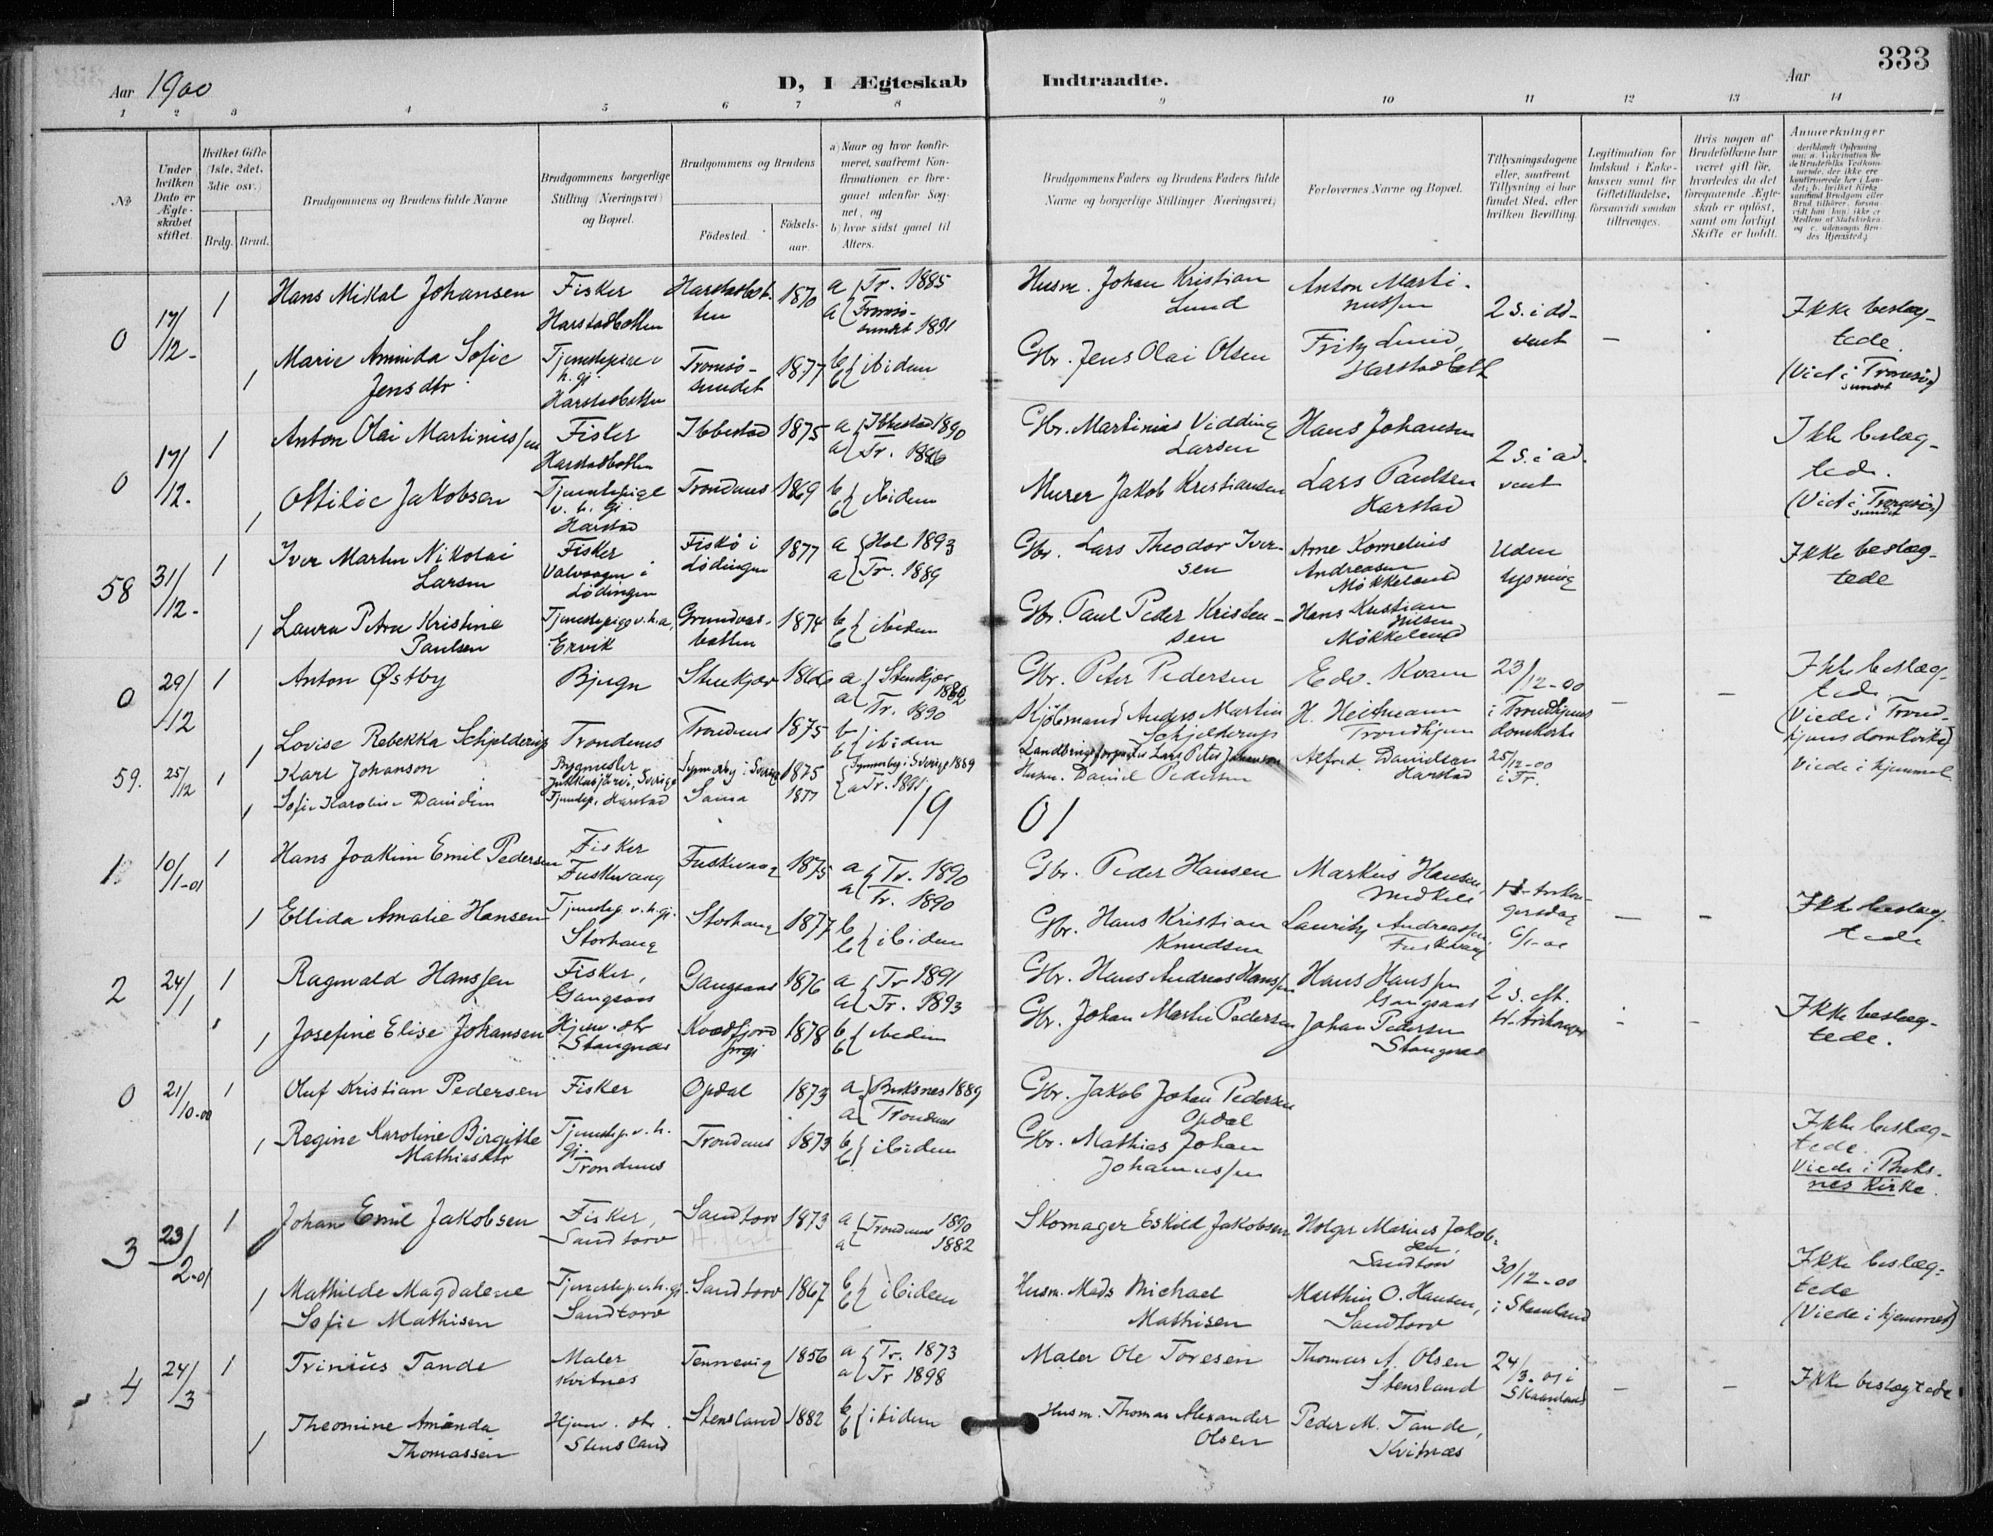 333
Aar 1900
D, I Ægteskab Indtraadte.
Aar
1 2 3 4 5 6 7 8 9 10 11 12 13 14
No
Under hvilken Dato er Ægteskabet stiftet.
Hvilket Gifte (1ste, 2det, 3die osv.)
Brdg. Brud.
Brudgommens og Brudens fulde Navne
Brudgommens borgerlige Stilling (Næringsvei) og Bopæl.
Brudgommens og Brudens
Födested.
Födselsaar.
a) Naar og hvor konfirmeret, saafremt Konfirmationen er foregaaet udenfor Sognet, og
b) hvor sidst gaaet til Alters.
Brudgommens Faders og Brudens Faders fulde Navne og borgerlige Stillinger (Næringsvei)
Forlovernes Navne og Bopæl.
Tillysningsdagene eller, saafremt Tillysning ei har fundet Sted, efter hvilken Bevilling.
Legitimation for Indskud i Enkekassen samt for Giftetilladelse, forsaavidt saadan tiltrænges.
Hvis nogen af Brudefolkene har været gift för, hvorledes da det foregaaende Ægteskab er oplöst, samt om lovligt Skifte er holdt.
Anmerkninger
0 17/12- 1 Hans Mikal Johansen Fisker Harstadbotten 1870 a Tr. 1885 Husm. Johan Kristian Lund Anton Martinussen 2 s. i advent - Ikke beslægtede.
Harstadbotten a Tromsösundet 1891
1 Marie Aminda Sofie Jensdtr. Tjenestepige v. h. gj. Harstadbotten Tromsösundet 1877 b b ibidem Gbr. Jens Olai Olsen Fritz Lund, Harstadbott (Viet i Tromsösundet)
0 17/12. 1 Anton Olai Martiniussen Fisker Harstadbotten Ibbestad 1875 a Ibbestad 1890 a Tr. 1896 Gbr. Martinius Vidding Larsen Hans Johansen 2 s. i advent Ikke beslægtede.
1 Ottilie Jakobsen Tjenestepige v. h. gj. Harstad Trondenes 1869 b b ibidem Murer Jakob Kristiansen Lars Paulsen Harstad (Viet i Tromsösundet)
58 31/12- 1 Iver Martin Nikolai Larsen Fisker Valvaagen i Lödingen Fiskö i Lödingen 1877 a Hol 1893 a Tr. 1889 Gbr. Lars Theodor Iversen Arne Kornelius Andreasen Møkkeland Uden lysning Ikke beslægtede
1 Laura Petra Kristine Paulsen Tjenestepige v. h. a. Ervik Grundvasbotten 1874 b b ibidem Gbr. Paul Peder Kristensen Hans Kristian Nilsen Møkkeland
0 29/12 1 Anton Østby Bjugn Stenkjær 1866 a Stenkjær 1882 a Tr. 1890 Gbr. Peter Pedersen Edv. Kvam 23/12-00 - Ikke beslægtede
1 Lovise Rebekka Schjelderup Trondenes Trondenes 1875 b b ibidem Kjöbmand Anders Martin Schjelderup H. Heitmann Trondhjem i Trondhjems domkirke (Viede i Trondhjems domkirke)
59. 25/12 1 Karl Johanson Bygmester Jukkasjärvi, Sverige 1875 Lars Peter Johanson Alfred Danielsen Harstad 25/12-00 i Tr. Viede i hjemmet
1 Sofie Karoline Danielsen Tjenestep. Harstad Sama 1877 a Tr. 1891 Husm. Daniel Pedersen
1901
1 10/1-01 1 Hans Joakim Emil Pedersen Fisker Fuskevaag Fuskevaag 1875 a Tr. 1890 a Tr. 1890 Gbr. Peder Hansen Markus Hansen,
1 Ellida Amalie Hansen Tjenestep. v. h. gj. Storhaug Storhaug 1877 b b ibidem Gbr. Hans Kristian Knudsen Lauritz Andreassen Fuskevaag 6/1-01 - - Ikke beslægtede
2 24/1 1 Ragnvald Hanssen Fisker, Gangsaas Gangsaas 1876 a Tr 1891 a Tr. 1893 Gbr. Hans Andreas Hanssen Hans Hanssen Gangsaas 2 s. eft.
1 Josefine Elise Johansen Hjem. dtr Stangnæs Kvædfjord 1878 b b ibidem Gbr. Johan Martin Pedersen Johan Pedersen Stangnæs - - Ikke beslægtede.
0 21/10-00 1 Oluf Kristian Pedersen Fisker Opdal 1873 a Buksnes 1889 a Trondenes Gbr. Jakob Johan Pedersen Opdal
1 Regine Karoline Birgitte Mathiasdtr Tjenestep. v. h. gj. Trondenes Trondenes 1873 b b ibidem Gbr. Mathias Johan Johannessen Ikke beslægtede. Viede i Buksnes Kirke.
3 23/2-01 1 Johan Emil Jakobsen Fisker, Sandtorv Sandtorv 1873 a Trondenes 1890 a 1882 Skomager Eskild Jakobsen Holger Marius Jakobsen, Sandtorv
1 Mathilde Magdalene Sofie Mathisen Tjenestep. v. h. gj. Sandtorv Sandtorv 1867 b b ibidem Husm. Mads Michael Mathisen Marthin O. Hansen, Sandtorv 30/12-00 i Skaanland Ikke beslægtede (Viede i hjemmet)
4 24/3 1 Trinius Tande Maler Kvitnes Tennevig 1856 a Tr. 1873 a Tr 1898 Maler Ole Toresen Thomas A. Olsen Stensland 24/3-01 i Skaanland - - Ikke beslægtede
1 Theomine Amanda Thomassen Hjem. dtr. Stensland Stensland 1882 b b ibidem Husm. Thomas Alexander Olsen Peder M. Tande, Kvitnæs